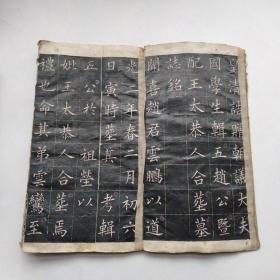 皇清誥贈朝議大夫
國學生輯五趙公暨
配王太恭人合葬墓
誌銘
聞喜趙君雲鵬以道
光二年春二月初六
日寅時葬其 考輯
五公於 祖塋以
妣王太恭人合葬焉
禮也命其弟雲鸞至